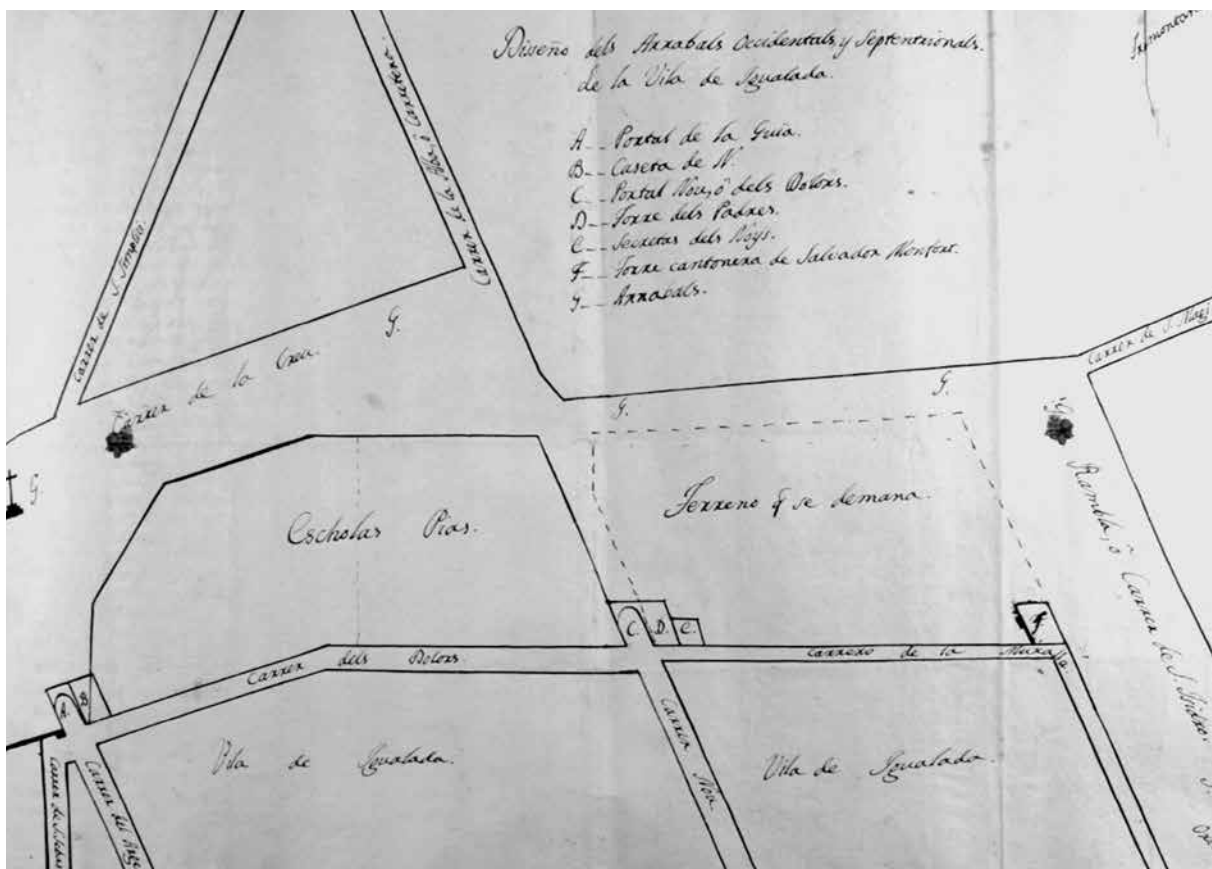 Diseño dels Arrabals Occidentals, y Septentrionals.
de la Vila de Igualada.
A__ Portal de la Guia.
B__ Caseta de N.
C__ Portal Nou, ô dels Dolors.
D__ Torre dels Padres.
C__ Secretas dels Noys.
F__ Torre cantonera de Salvador Monfort.
G__ Arrabals.
Carrer de S. Simplici.
Carrer de la
Carretera.
Carrer de la Creu.
G.
G.
G.
G.
G.
Carrer de S. Magi
Escholas Pias.
Terreno q̃ se demana.
Rambla, ô Carrer de S. Isidro.
C.
D.
C.
F.
A.
B.
Carrer dels Dolors.
Carrero de la Muralla.
Vila de Igualada.
Vila de Igualada.
Carrer Nou.
Carrer del
Carrer de